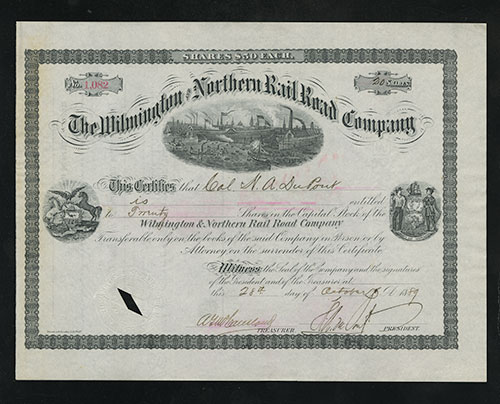 SHARES $50 EACH.
No. 1,082
20 Shares
The Wilmington and Northern Rail Road Company
This Certifies that Col. H. A. DuPont
is entitled
to Twenty Shares in the Capital Stock of the
Wilmington & Northern Rail Road Company
Transferable only on the books of the said Company in Person or by
Attorney on the surrender of this Certificate
Witness the Seal of the Company and the signatures
of the President and of the Treasurer at
this 28th day of October 1889
TREASURER.
PRESIDENT.